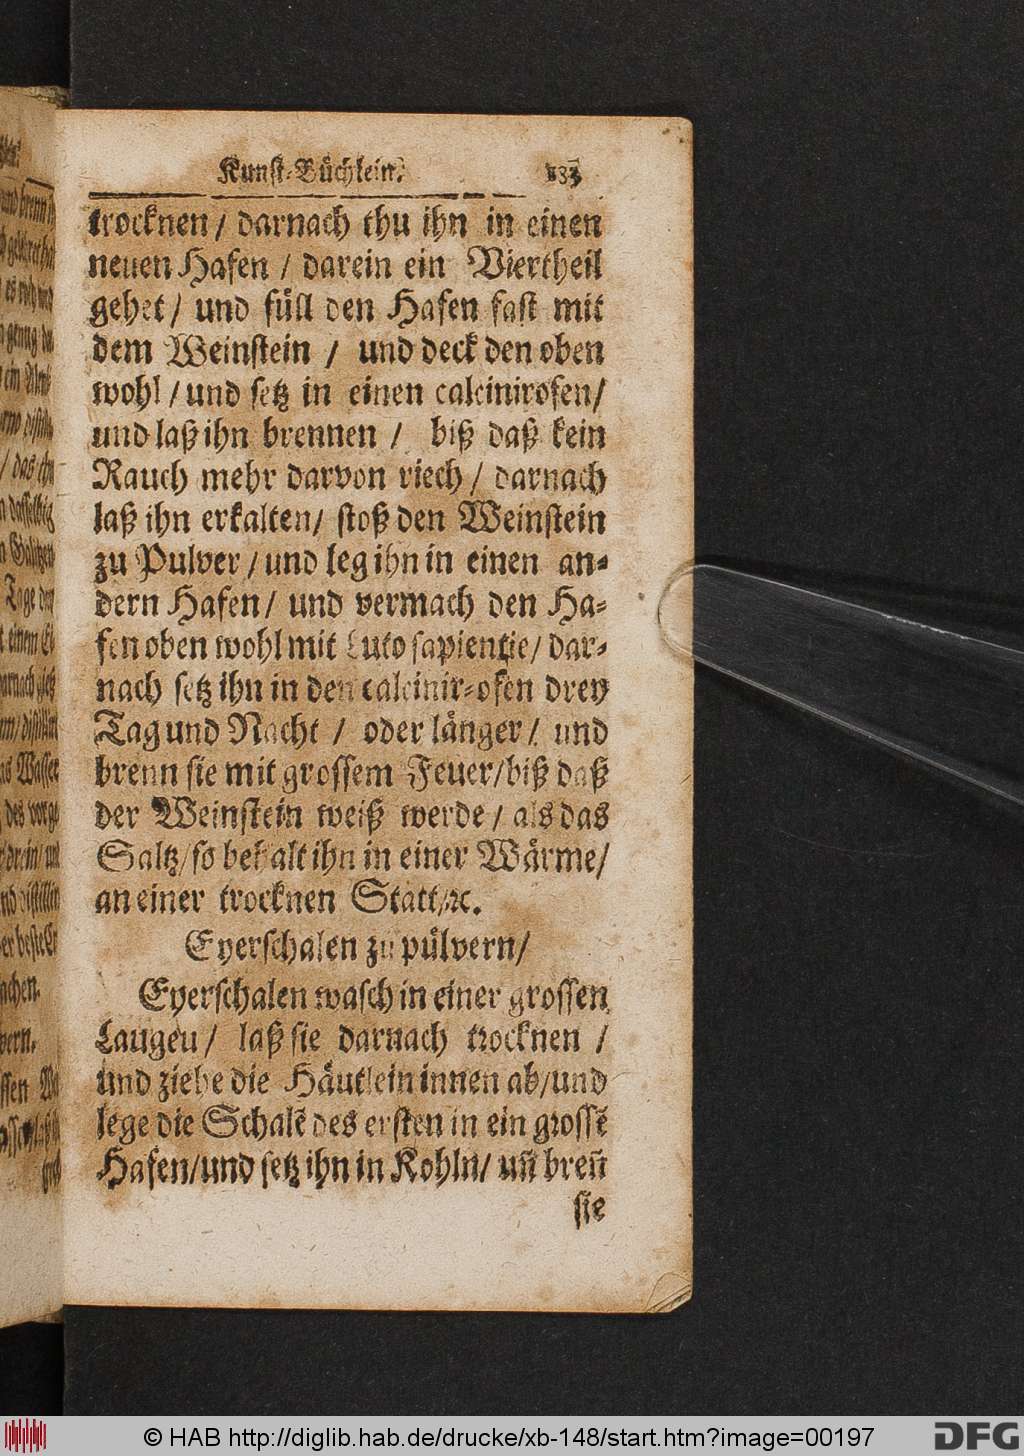 Kunst-Büchlein. 133
trocknen / darnach thu ihn in einen
neuen Hafen / darein ein Viertheil
gehet / und füll den Hafen fast mit
dem Weinstein / und deck den oben
wohl / und setz in einen calcinirofen /
und laß ihn brennen / biß daß kein
Rauch mehr darvon riech / darnach
laß ihn erkalten / stoß den Weinstein
zu Pulver / und leg ihn in einen an-
dern Hafen / und vermach den Ha-
fen oben wohl mit Luto sapientie / dar-
nach setz ihn in den calcinir-ofen drey
Tag und Nacht / oder länger / und
brenn sie mit grossem Feuer / biß daß
der Weinstein weiß werde / als das
Saltz / so behalt ihn in einer Wärme /
an einer trocknen Statt / ꝛc.
Eyerschalen zu pülvern /
Eyerschalen wasch in einer grossen
Laugeu / laß sie darnach trocknen /
und ziehe die Häutlein innen ab / und
lege die Schalē des ersten in ein grossē
Hafen / und setz ihn in Kohln / un̄ breñ
sie
© HAB http://diglib.hab.de/drucke/xb-148/start.htm?image=00197
DFG